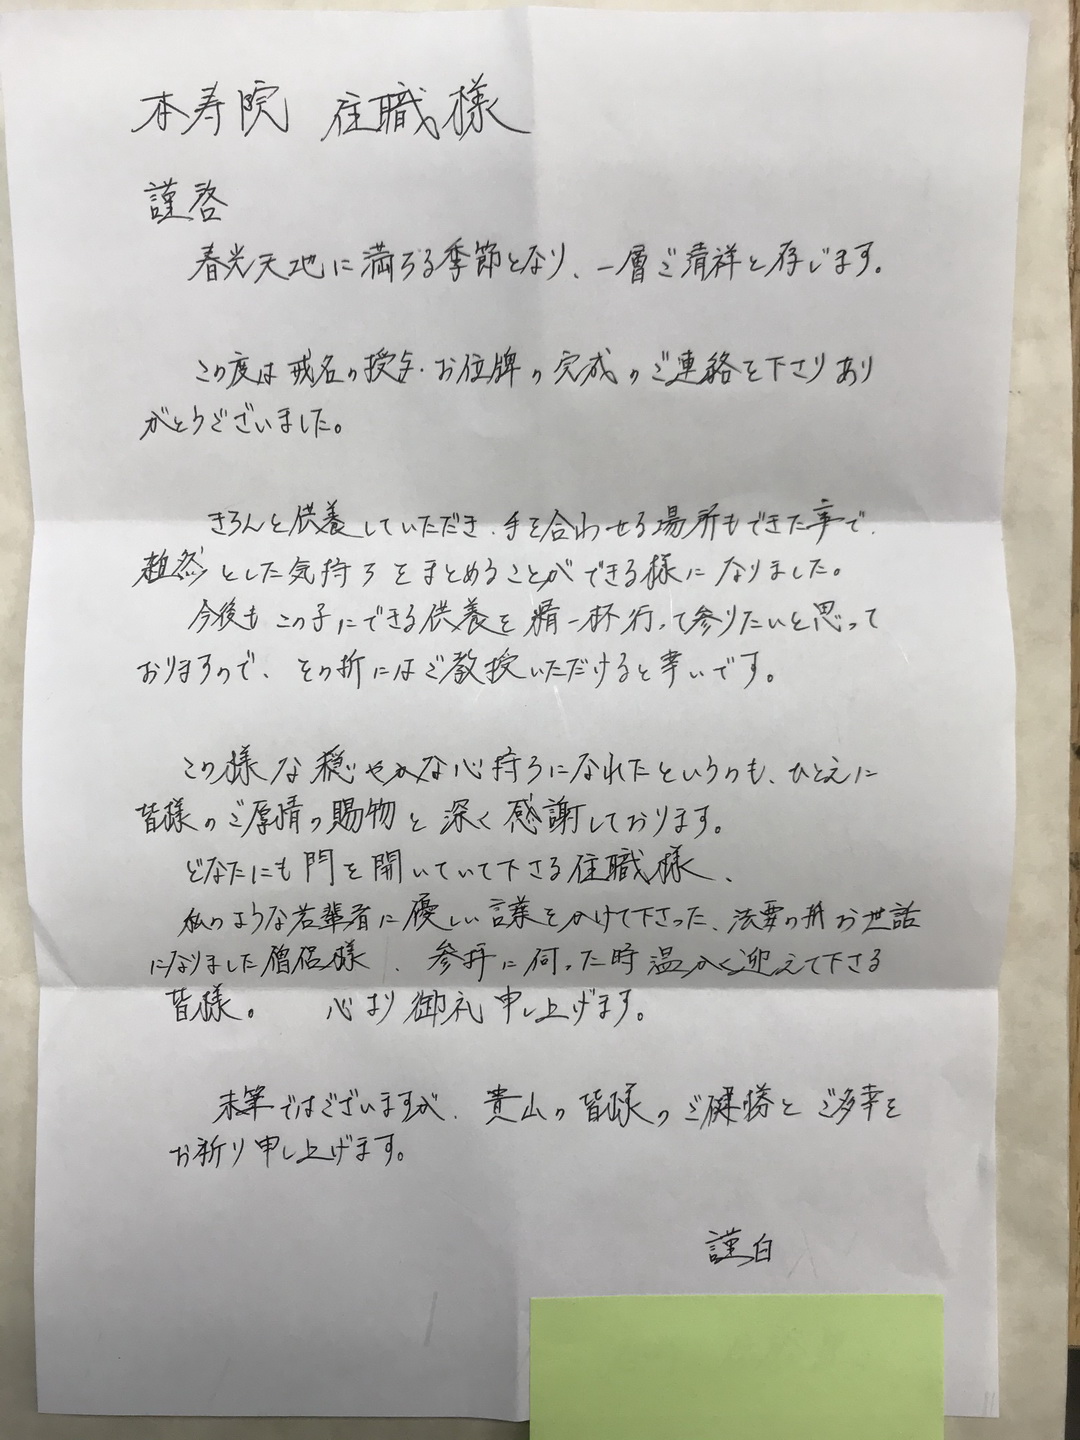 本寿院 住職様
謹啓
春光天地に満ちる季節となり、一層ご清祥と存じます。
この度は戒名の授与・お位牌の完成のご連絡を下さりあり
がとうございました。
きちんと供養していただき、手を合わせる場所もできた事で、
超然とした気持ちをまとめることができる様になりました。
今後もこの子にできる供養を精一杯行って参りたいと思って
おりますので、その折にはご教授いただけると幸いです。
この様な穏やかな心持ちになれたというのも、ひとえに
皆様のご厚情の賜物と深く感謝しております。
どなたにも門を開いていて下さる住職様、
私のような若輩者に優しい言葉をかけて下さった、法要の折お世話
になりました僧侶様、参拝に伺った時温かく迎えて下さる
皆様。 心より御礼申し上げます。
末筆ではございますが、貴山の皆様のご健勝とご多幸を
お祈り申し上げます。
謹白